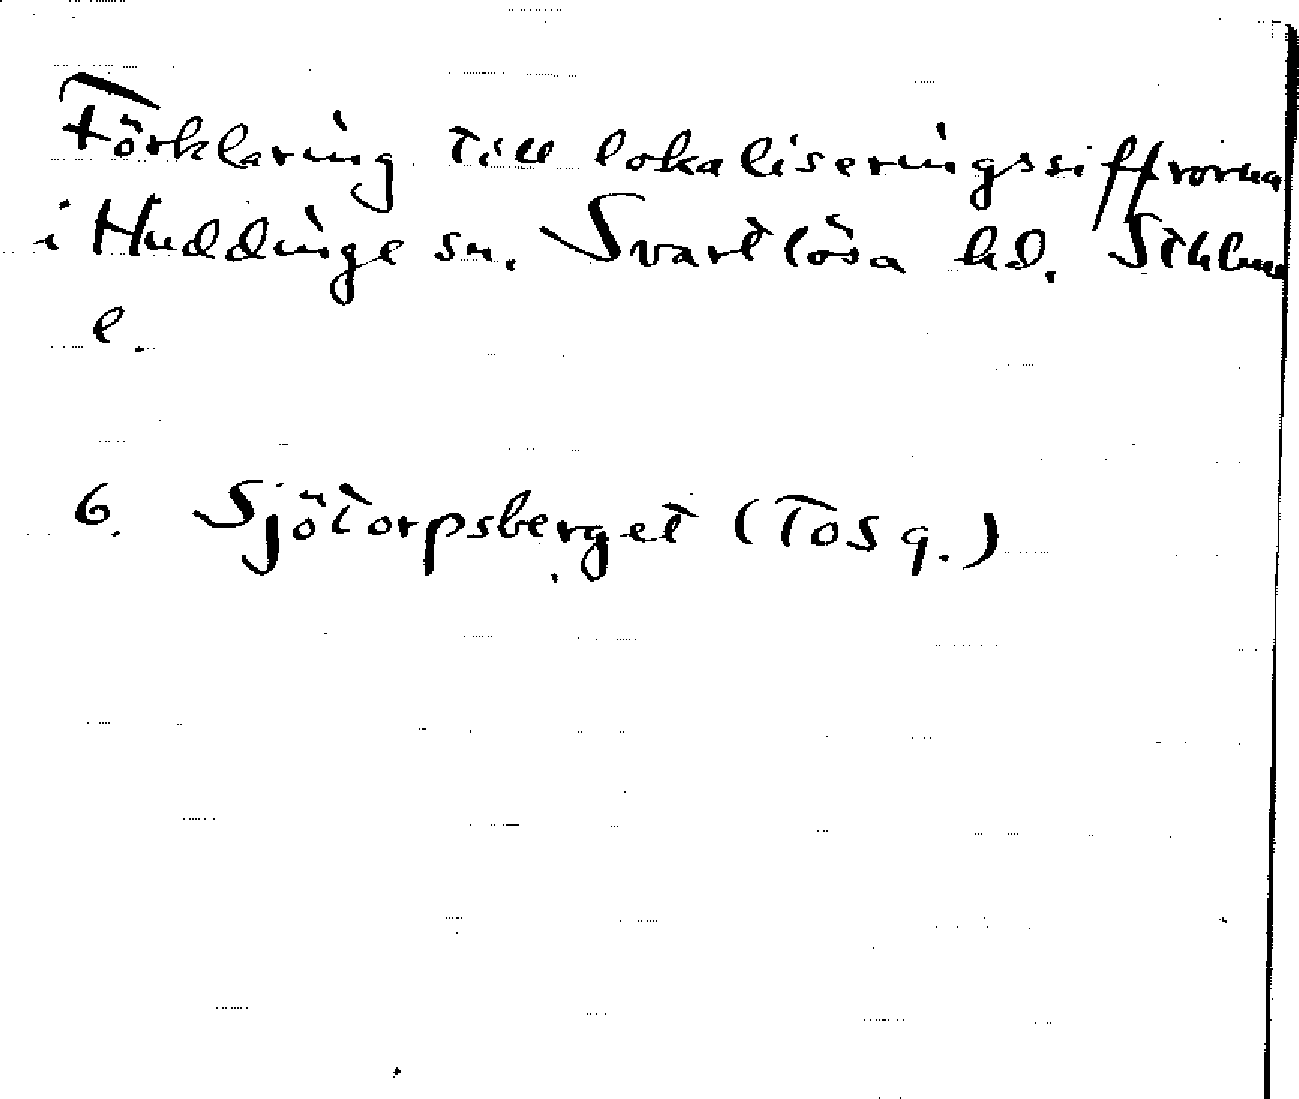 Förklaring till lokaliseringssiffrorna
i Huddinge sn. Svartlösa hd. Sthlms
l.
6. Sjötorpsberget (TOSq.)